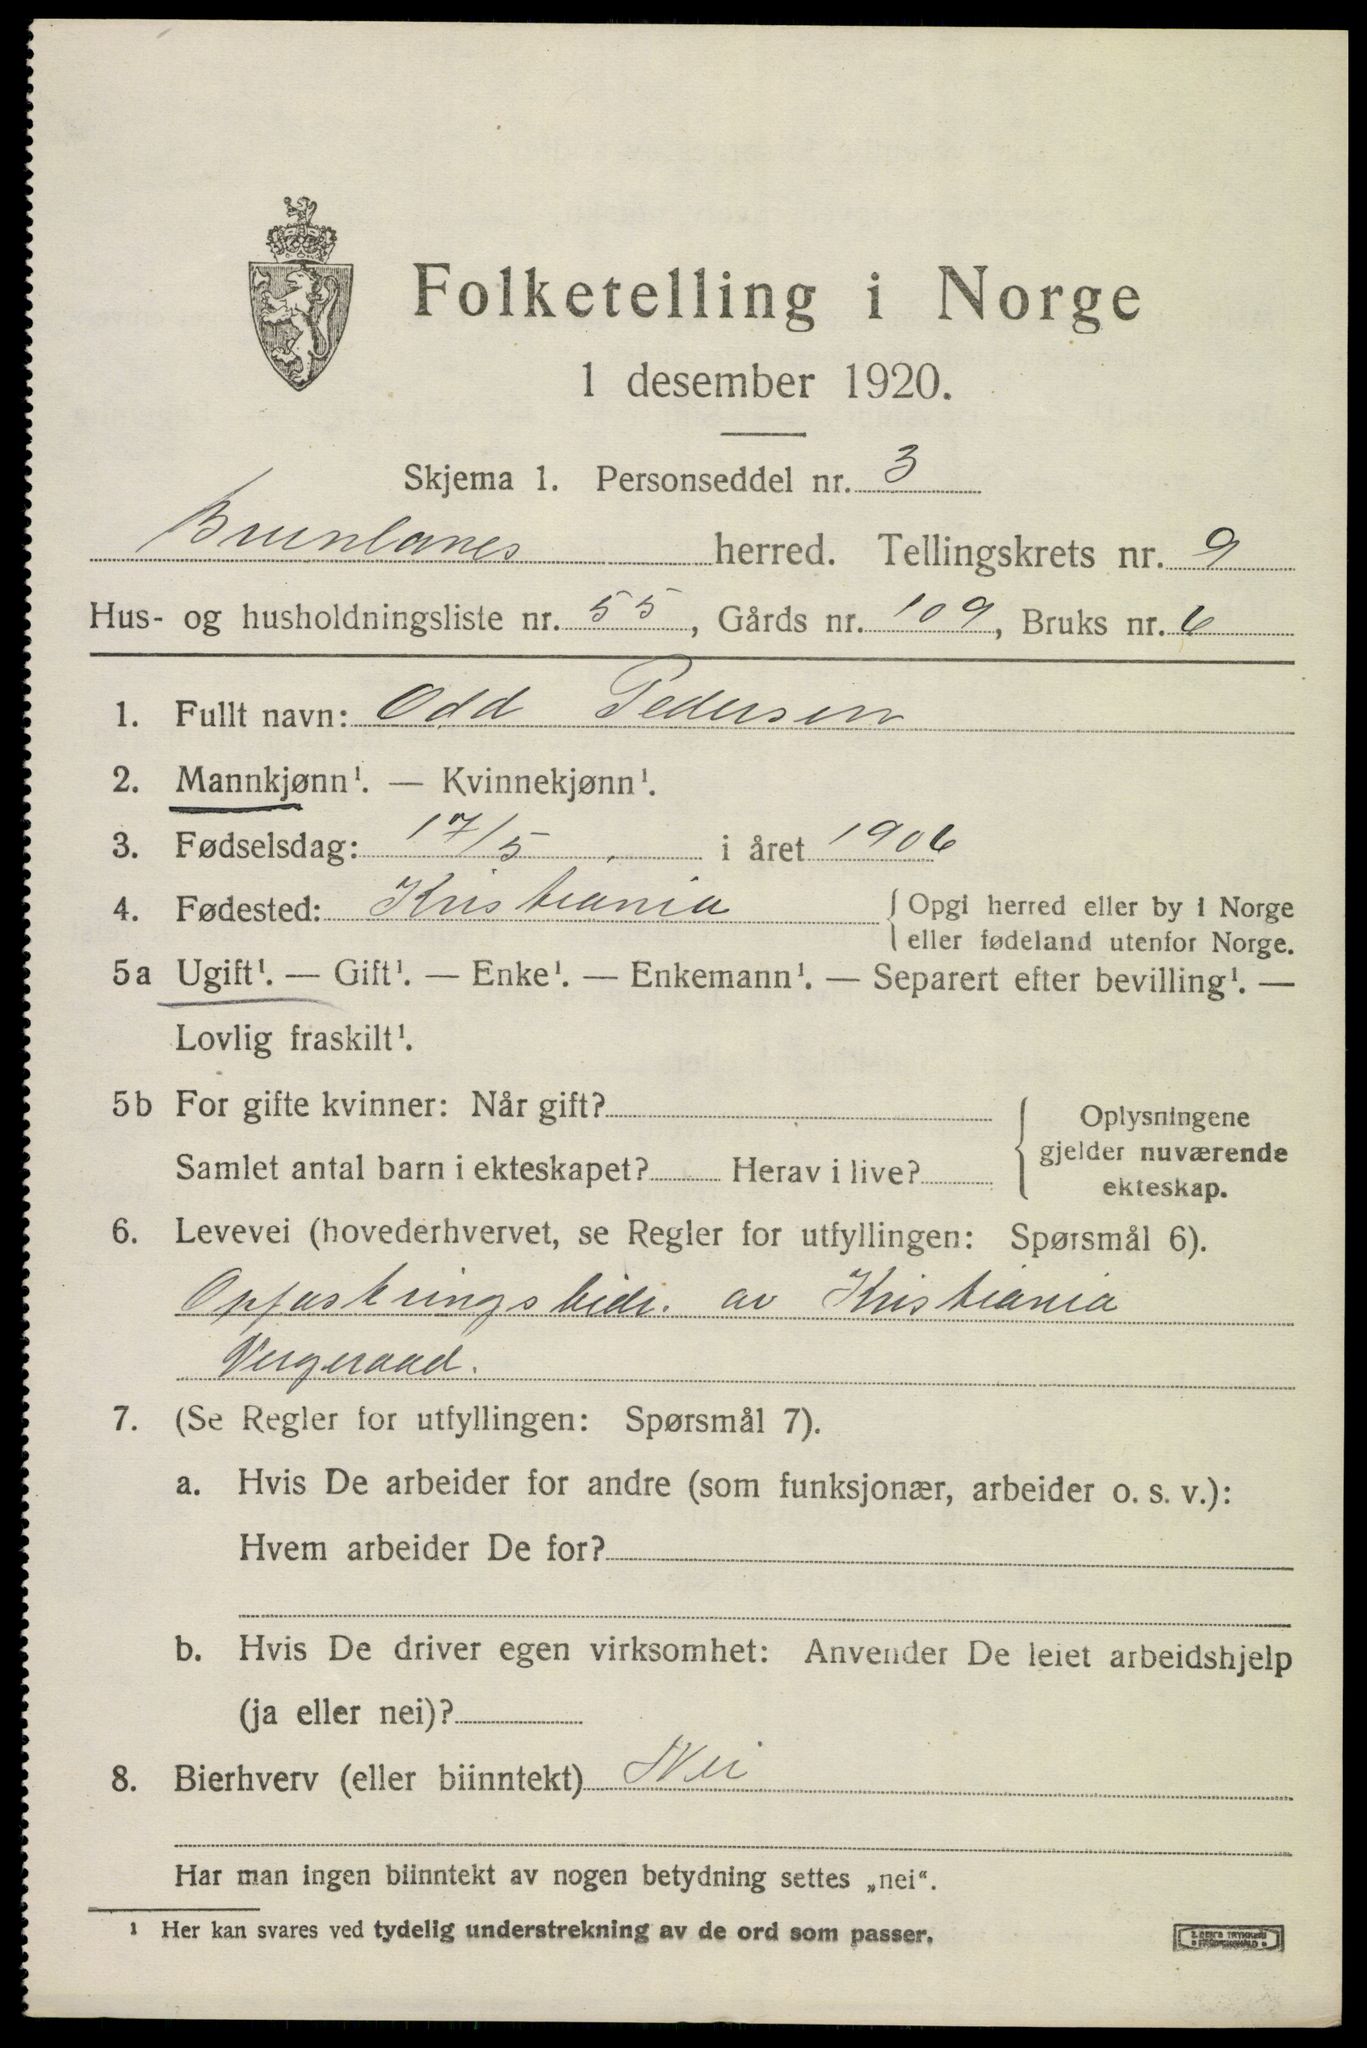 Folketelling i Norge
1 desember 1920.
Skjema 1. Personseddel nr. 3
Brunlanes herred. Tellingskrets nr. 9
Hus- og husholdningsliste nr. 55, Gårds nr. 109, Bruks nr. 6
1. Fullt navn: Odd Pedersen
2. Mannkjønn¹. — Kvinnekjønn¹.
3. Fødselsdag: 17/5 i året 1906
4. Fødested: Kristiania { Opgi herred eller by i Norge
eller fødeland utenfor Norge.
5a Ugift¹. — Gift¹. — Enke¹. — Enkemann¹. — Separert efter bevilling¹. —
Lovlig fraskilt¹.
5b For gifte kvinner: Når gift?
Samlet antal barn i ekteskapet? Herav i live?
{ Oplysningene
gjelder nuværende
ekteskap.
6. Levevei (hovederhvervet, se Regler for utfyllingen: Spørsmål 6).
Opfostringsbidr. av Kristiania
Vergeraad.
7. (Se Regler for utfyllingen: Spørsmål 7).
a. Hvis De arbeider for andre (som funksjonær, arbeider o. s. v.):
Hvem arbeider De for?
b. Hvis De driver egen virksomhet: Anvender De leiet arbeidshjelp
(ja eller nei)?
8. Bierhverv (eller biinntekt) Nei
Har man ingen biinntekt av nogen betydning settes „nei“.
¹ Her kan svares ved tydelig understrekning av de ord som passer.